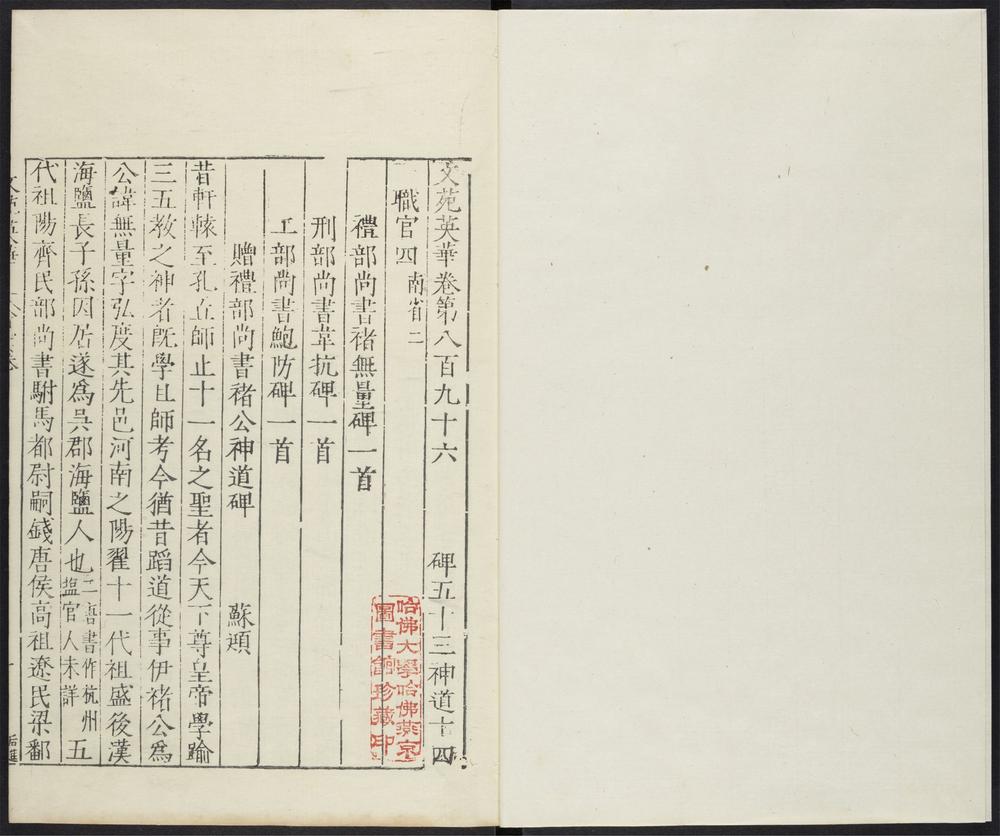 文苑英華卷第八百九十六　碑五十三神道十四
職官四南省二
禮部尚書褚無量碑一首
刑部尚書韋抗碑一首
工部尚書鮑防碑一首
贈禮部尚書褚公神道碑　蘇頲
昔軒轅至孔丘師止十一名之聖者今天下尊皇帝學踰
三五教之神者旣學且師考今猶昔蹈道從事伊褚公爲
公諱無量字弘度其先邑河南之陽翟十一代祖盛後漢
海鹽長子孫因居遂爲吳郡海鹽人也二唐書作杭州塩官人未詳五
代祖陽齊民部尚書駙馬都尉嗣錢唐侯高祖遼民梁鄱
哈佛大學哈佛燕京
圖書館珍藏印